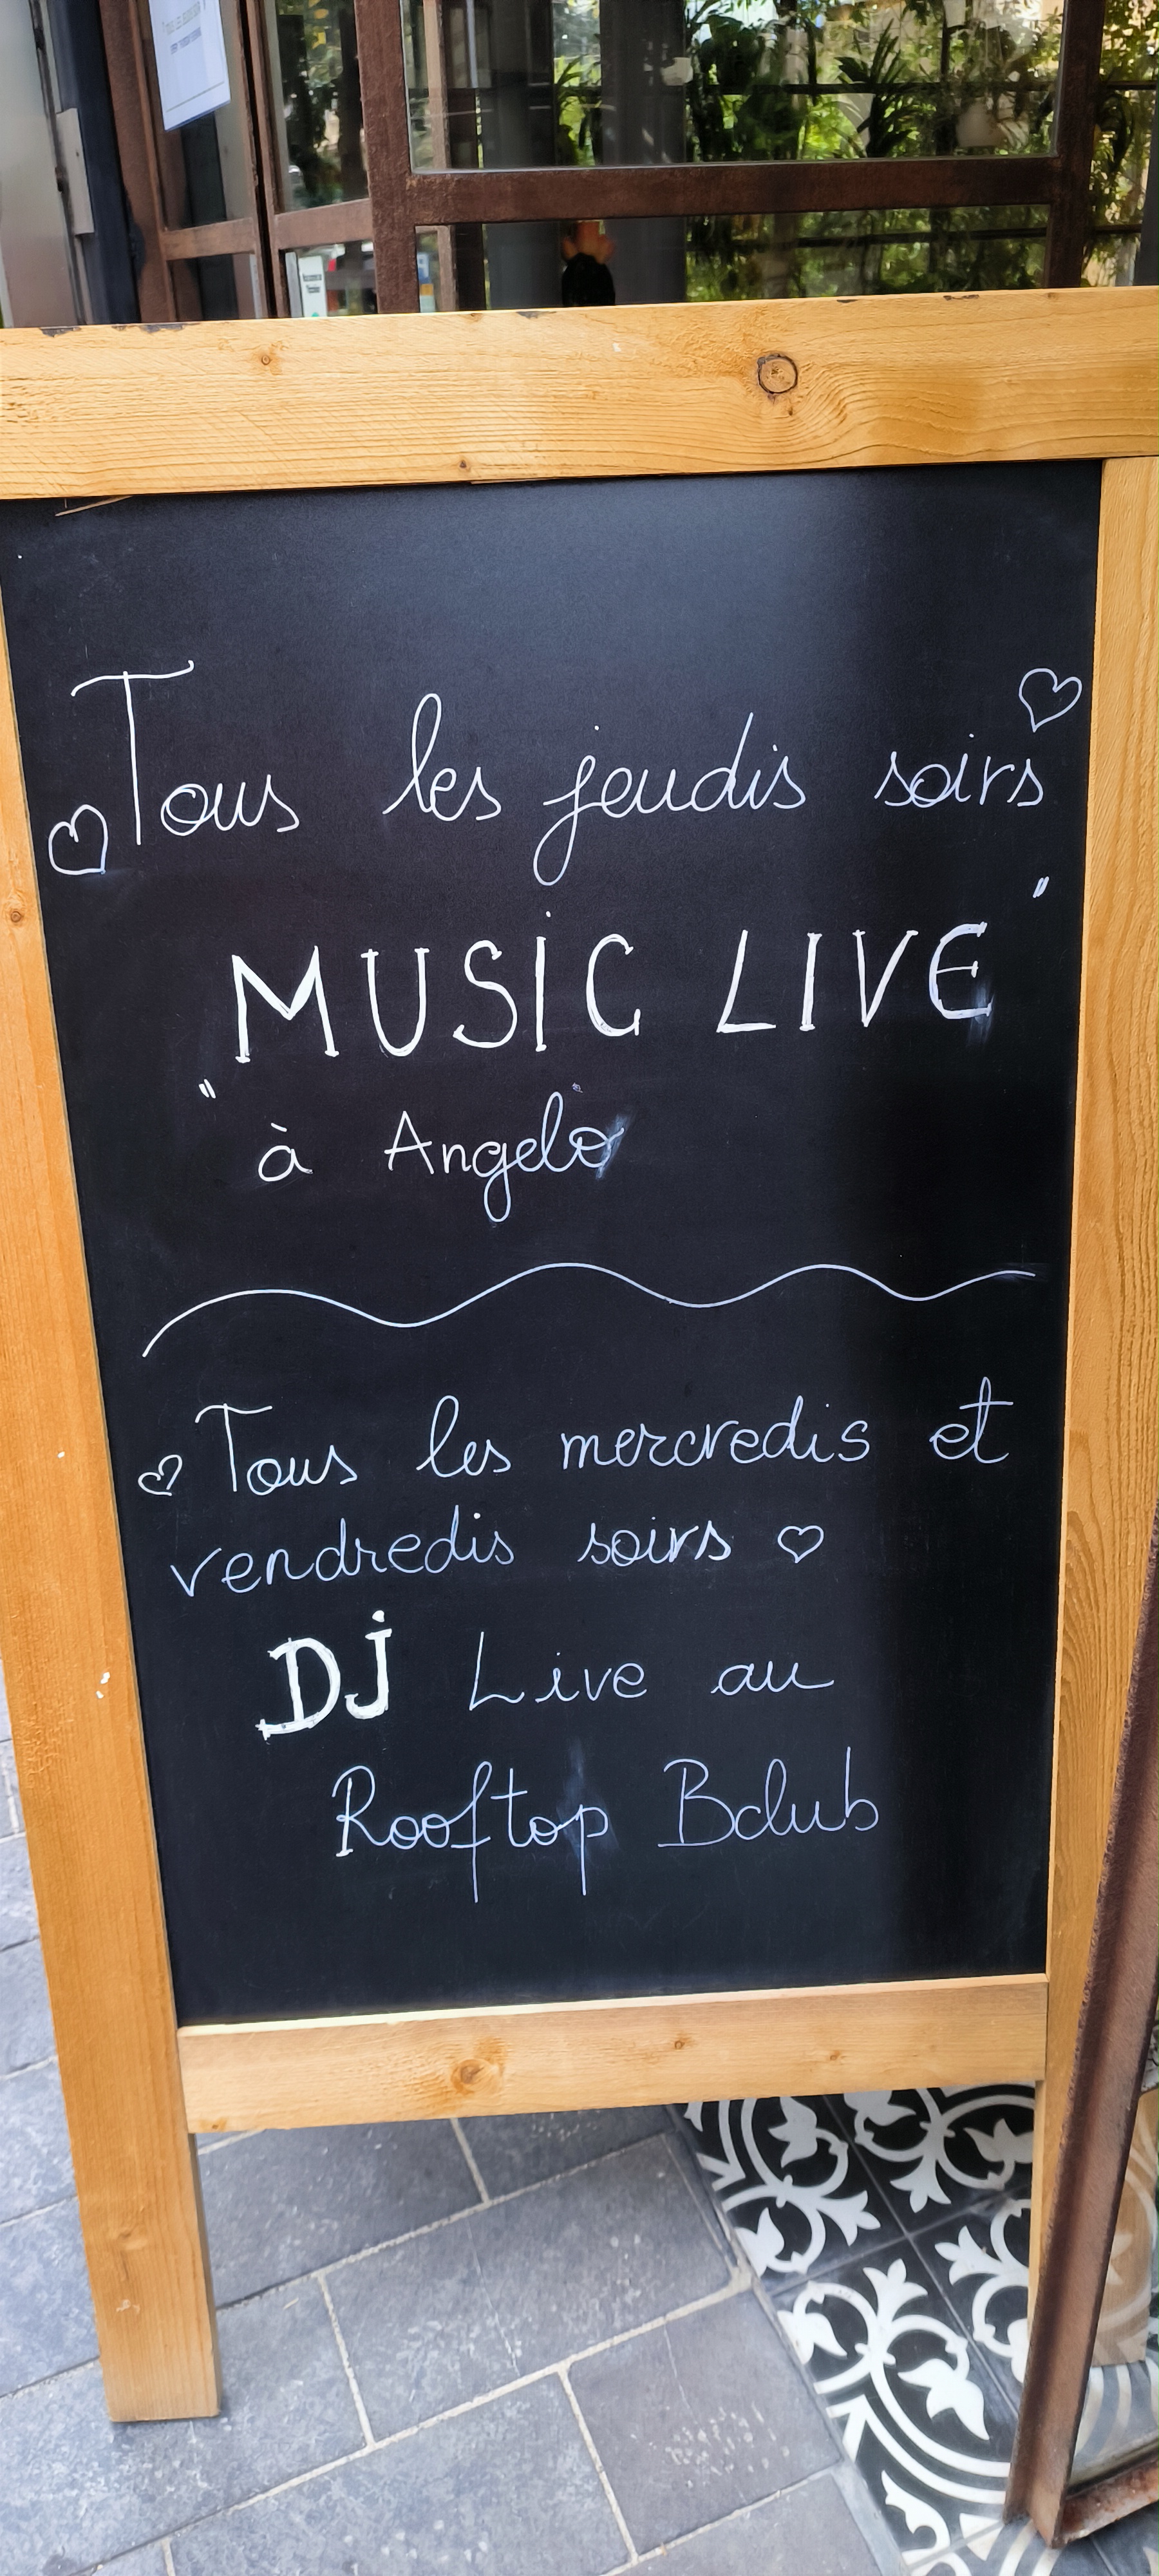 Tous les jeudis soirs
"MUSIC LIVE"
à Angelo
Tous les mercredis et
vendredis soirs
DJ Live au
Rooftop Bclub